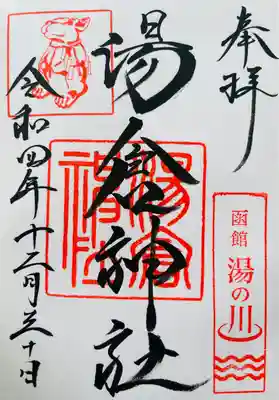 奉拝
函館
湯の川
湯倉神社
令和四年十二月三十日